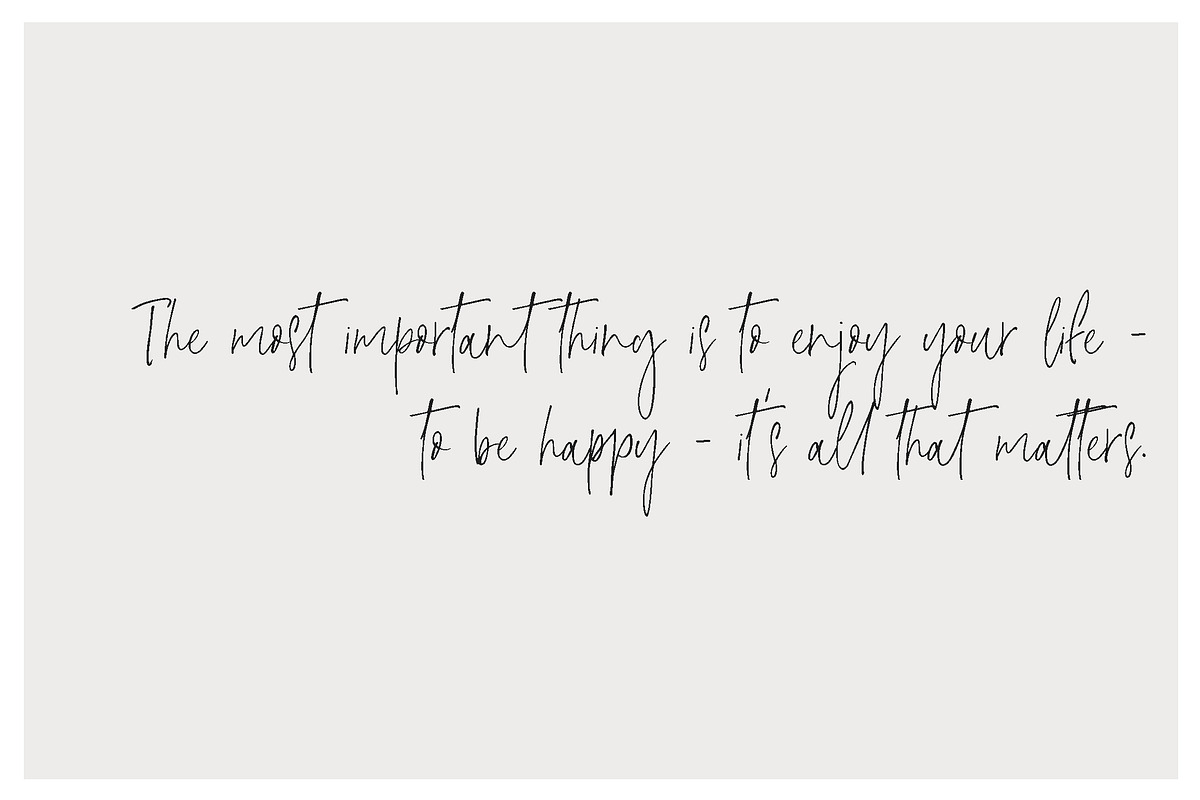 The most important thing is to enjoy your life -
to be happy - it's all that matters.